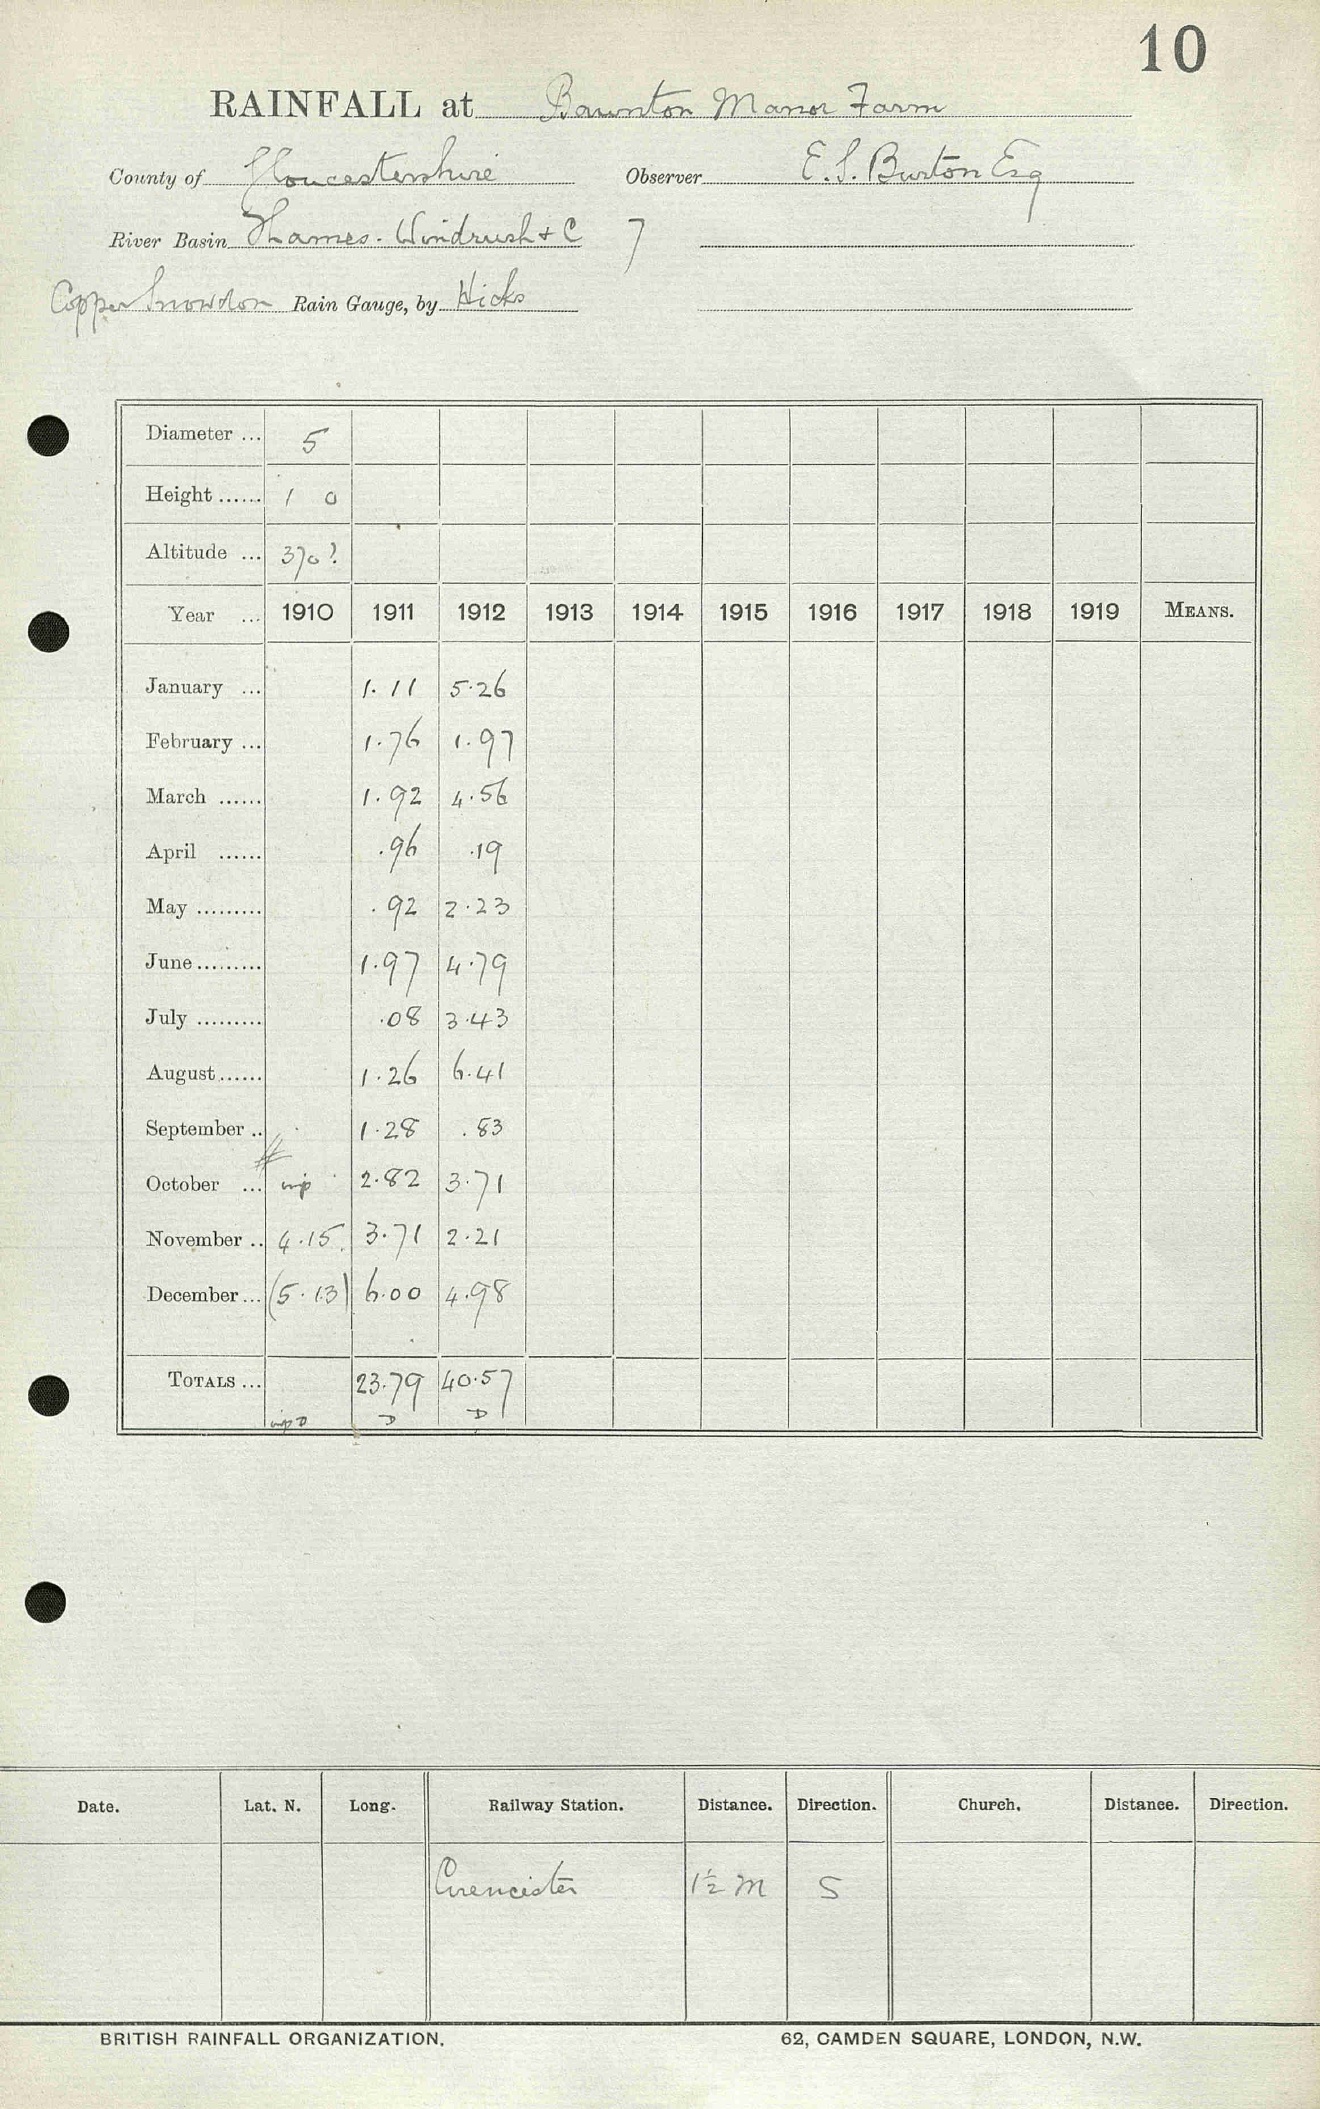 10
RAINFALL at Baunton Manor Farm
County of Gloucestershire Observer E. S. Burton Esq
River Basin Thames. Windrush + C 7
Copper Snowdon Rain Gauge, by Hicks
Diameter ... 5
Height ...... 1 0
Altitude ... 370?
Year ... 1910 1911 1912 1913 1914 1915 1916 1917 1918 1919 MEANS.
January ... 1.11 5.26
February ... 1.76 1.97
March ...... 1.92 4.56
April ...... .96 .19
May ......... .92 2.23
June ......... 1.97 4.79
July ......... .08 3.43
August ...... 1.26 6.41
September .. 1.28 .83
October ... inp 2.82 3.71
November .. 4.15 3.71 2.21
December ... (5.13) 6.00 4.98
TOTALS ... 23.79 40.57
inp D D D
Date. Lat. N. Long. Railway Station. Distance. Direction. Church. Distance. Direction.
Cirencester 1½ M S
BRITISH RAINFALL ORGANIZATION. 62, CAMDEN SQUARE, LONDON, N.W.